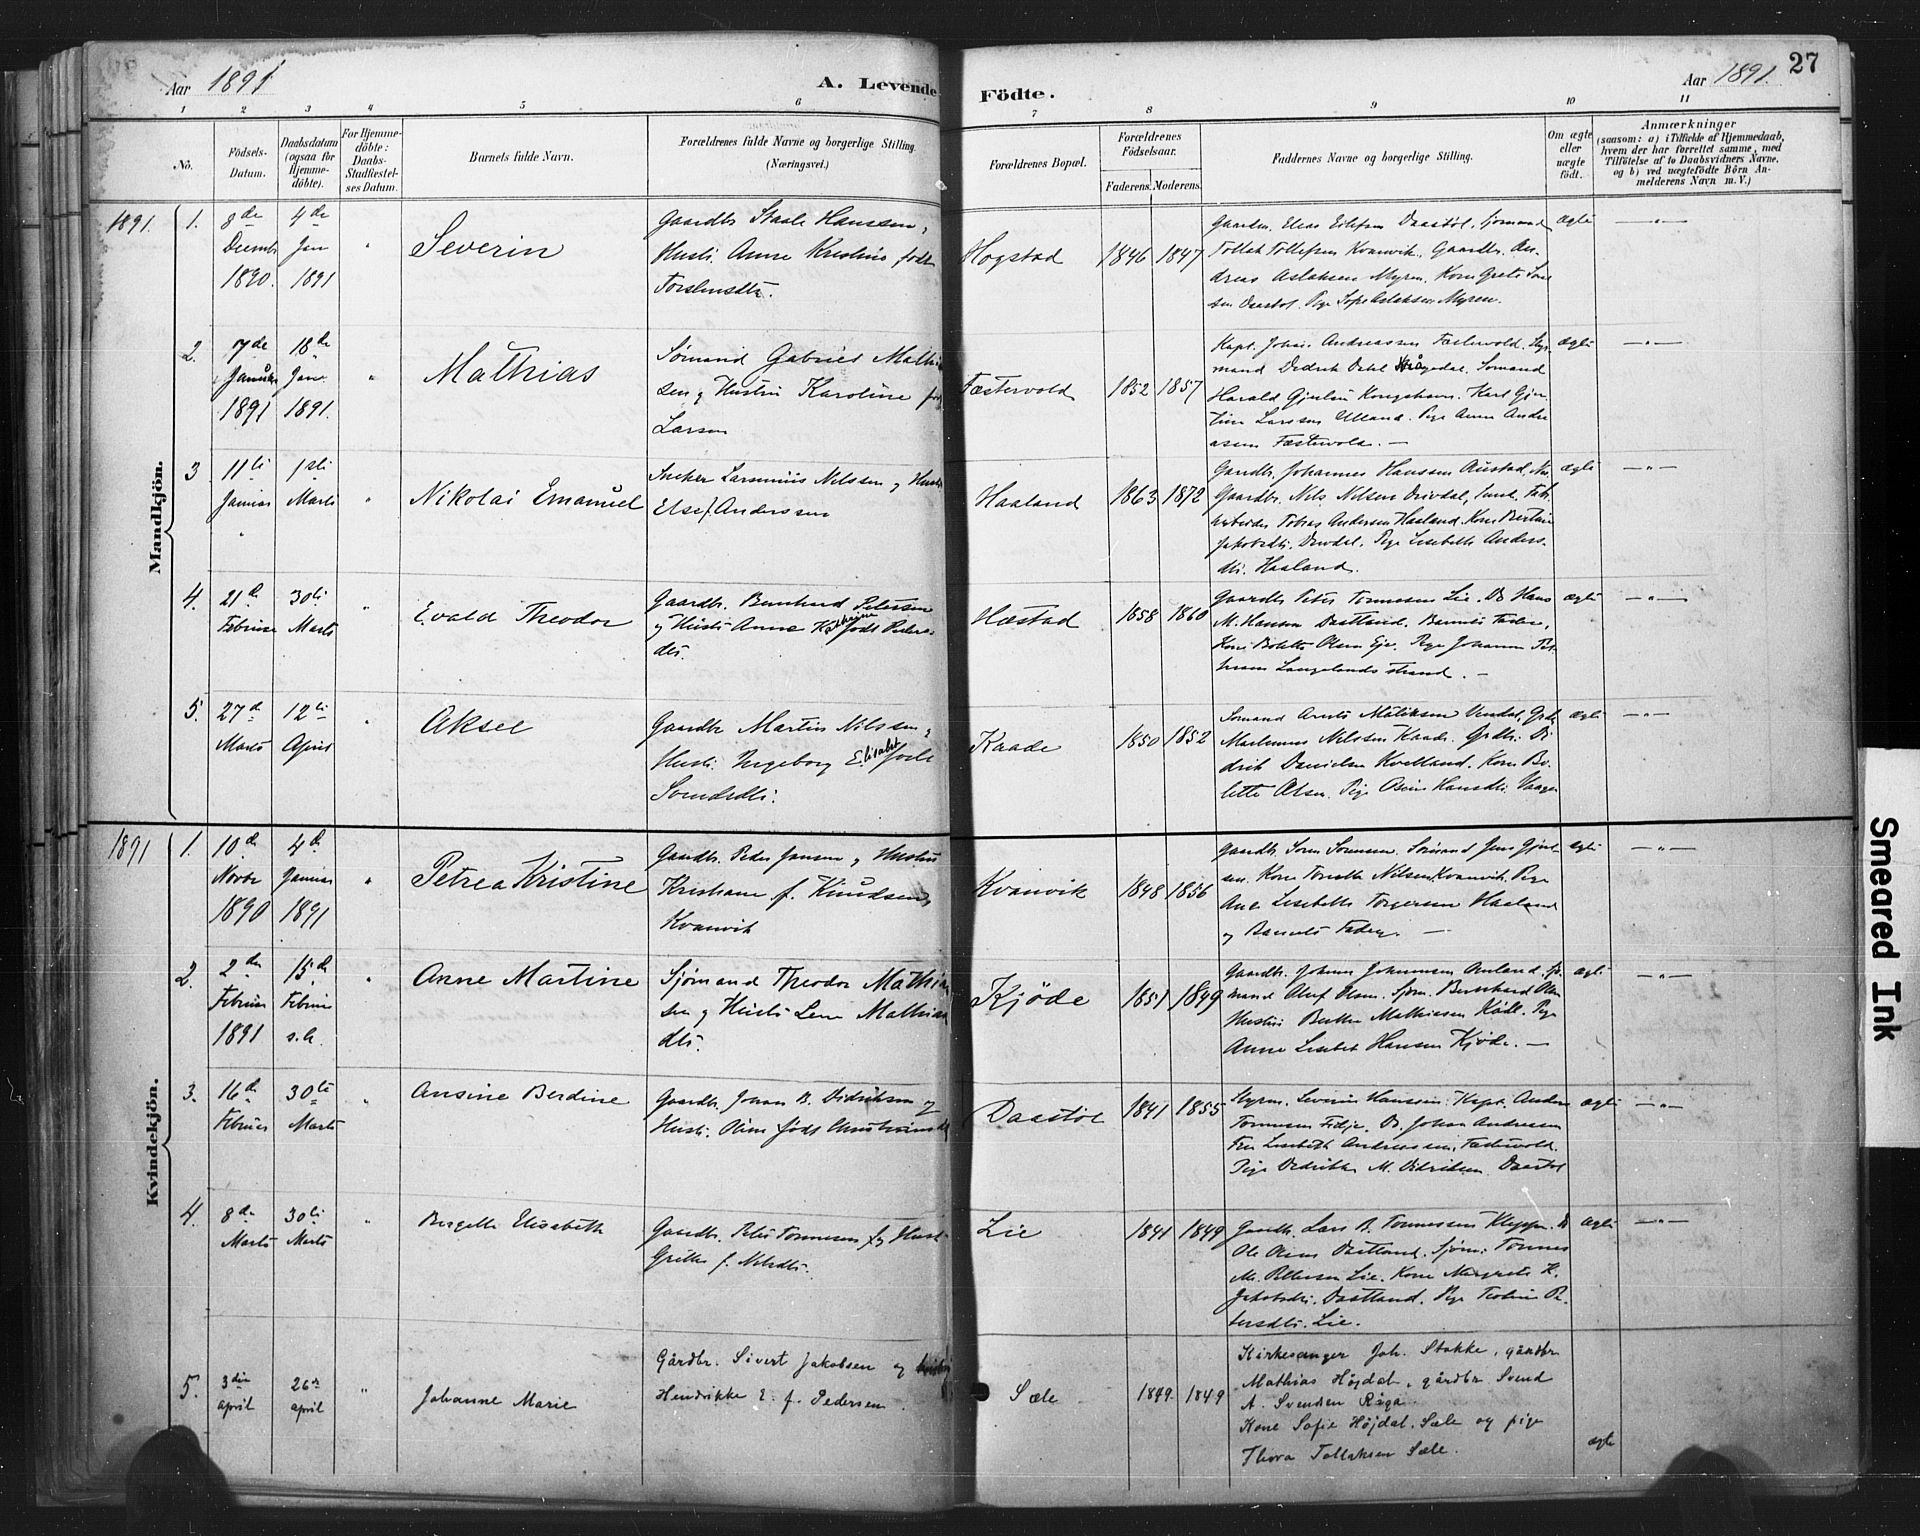 Aar 1891
A. Levende Födte.
Aar 1891.
27
1 2 3 4 5 6 7 8 9 10 11
No.
Födsels-
Datum.
Daabsdatum
(ogsaa for
Hjemme-
döbte).
For Hjemme-
döbte:
Daabs-
Stadfæstel-
ses Datum.
Barnets fulde Navn.
Forældrenes fulde Navne og borgerlige Stilling.
(Næringsvei.)
Forældrenes Bopæl.
Forældrenes
Födselsaar.
Faderens. Moderens.
Faddernes Navne og borgerlige Stilling.
Om ægte
eller
uægte
født.
Anmærkninger
(saasom: a) i Tilfælde af Hjemmedaab,
hvem der har forrettet samme, med
Tilföielse af to Daabsvidners Navne,
og b) ved uægtefödte Börn An-
melderens Navn m. V.)
Mandkjön.
1891.
1.
8de
Decembr
1890.
4de
Jan
1891
"
Severin
Gaardbr. Staale Hanssen,
Hustr. Anne Kristine født
Hogstad
1846 1847
Gaardm. Elias Eilefsen Daastöl, Sjömand
Tollak Tollefsen Kvanvik. Gaardbr. An-
dreas Aslaksen Myren. Kone Grete
Daastol. Pige Aslaksen Myren.
ægte
— " —
2.
7de
Januar
1891
18de
Jan.
1891.
"
Mathias
Sømand Gabriel Mathi
sen og Hustru Karoline f.
Larsen
Fæstervold
1852 1857
Kapt. Johan Andreassen Fæstervold.
mand Didrik. Sömand
Harald Gjulsen Kongshavn. Karl
Larssen Ulland. Pige Anna Andre
assen Fæstervold. —
ægte
— " —
3
11te
Januar
"
1ste
Marts
"
Nikolai Emanuel
Sneker Larsenius Nilssen og Hustr.
Else f. Anderssen
Haaland
1863 1872
Gaardbr. Johannes Hanssen Austad,
Gaardbr. Nils Nilsen Drivdal,
arbeider Tobias Andersen Haaland. Kone Bertine
Jakobsdtr. Drivdal. Pige Lisebeth Anders-
dtr. Haaland.
ægte
— " —
4.
21de
Februar
30te
Marts
"
Evald Theodor
Gaardbr. Bernhard Petersen
og Hustr. Anne Kathrine født Peders-
dtr.
Hæstad
1858 1860
Gaardbr. Peter Tonnesen Lie. Do Hans
M. Hansen Dastland. Barnets Fader,
Kone Bolette Olsen Eje. Pige Johanne
Langelandsstrand. —
ægte
— " —
5.
27de
Marts
12te
April
"
Aksel
Gaardbr Martin Nilssen og
Hustr. Ingeborg Elisabet født
Svendsdtr.
Kaade
1850 1852
Sømand Arnt Vendal,
Martinius Nilssen Kaade. Grdbr. Di
drik Danielsen Kvelland. Kone Bo
lette Olsen. Pige Hansdtr. Vaage
ægte
— " —
Kvindekjön.
1891
1.
10de
Novbr
1890
4de
Januar
1891
"
Petrea Kristine
Gaardbr. Peder Jansen og Hustru
Kristiane f. Knudsen,
Kvanvik
Kvanvik
1848 1856
Gaardb. Soren Sorensen. Sømand Jens Gjul-
sen. Kone Tomette Nilsen Kvanvik. Pige
Ane Lisebeth Torgersen Haaland
og Barnets Fader. —
ægte
— " —
2.
2den
Februar
1891
15de
Februar
s.A.
"
Anne Martine
Sjømand Theodor Mathias
sen og Hustr. Lene Mathias
dtr.
Kjöde
1851 1849
Gaardbr. Johan Johannesen Auland,
mand Oluf Olsen. Sjöm. Bernhard Olsen
Hustru Berthe Mathiesen Ködl. Pige
Anne Lisebet Hansen Kjöde. —
ægte
— " —
3.
16de
Februar
30te
Marts
"
Ansine Berdine
Gaardbr. Johan B. Didriksen og
Hustr. Oline født Christiansdtr
Daastöl
1841 1855
Styrm. Severin Hanssen. Kapt. Anders
Tonnesen Fidje. Do. Johan Andreassen
Fru Lisebeth Andreassen, Fæstervold.
Pige Didrikke M. Didriksen Daastöl
ægte
— " —
4.
8de
Marts
30te
Marts
"
Bergette Elisabeth
Gaardbr. Peter Tonnesen og Hustr.
Grethe f. Nilsdtr.
Lie
1841 1849
Gaardbr. Lars B. Tonnessen Kleppen. Do
Ole Olsen Dastland. Sjöm: Tonnes
M. Pettersen Lie. Kone Margrete K.
Jakobsdtr. Dastland. Pige Pe-
tersdtr. Lie.
ægte
— " —
5.
3die
april
26de
april
"
Johanne Marie
Gårdbr. Sivert Jakobsen og
Hendrikke E. f. Pedersen.
Sæle
1849. 1849
Kirkesanger Joh. Stokke, gårdbr
Mathias Höjdal, gårdbr Svend
A. Svendsen Riga.
Kone Sofie Höjdal. Sæle og pige
Thora Tollaksen Sæle.
ægte
Smeared Ink